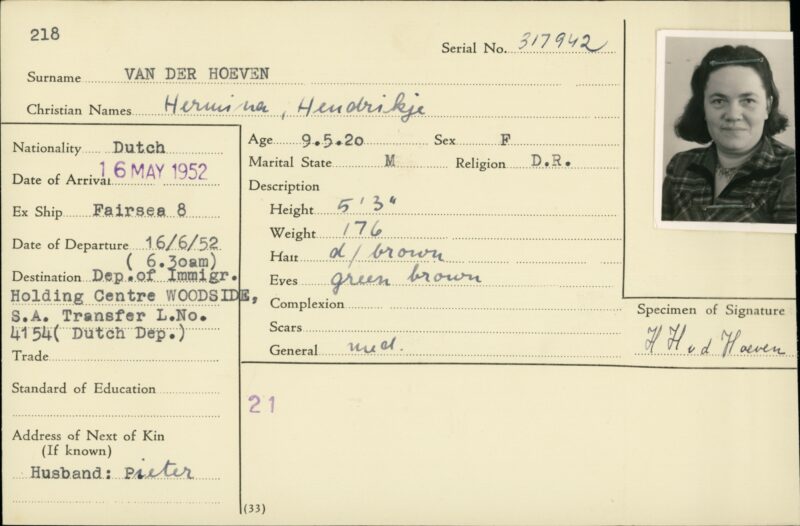 218
Serial No. 317942
Surname VAN DER HOEVEN
Christian Names Hermina, Hendrikje
Nationality Dutch
Date of Arrival 16 MAY 1952
Ex Ship Fairsea 8
Date of Departure 16/6/52
( 6.30am)
Destination Dep.of Immigr.
Holding Centre WOODSIDE,
S.A. Transfer L.No.
4154( Dutch Dep.)
Trade
Standard of Education
Address of Next of Kin
(If known)
Husband: Pieter
Age 9.5.20 Sex F
Marital State M Religion D.R.
Description
Height 5'3"
Weight 176
Hair d/brown
Eyes green brown
Complexion
Scars
General med.
21
(33)
Specimen of Signature
H H v d Hoeven